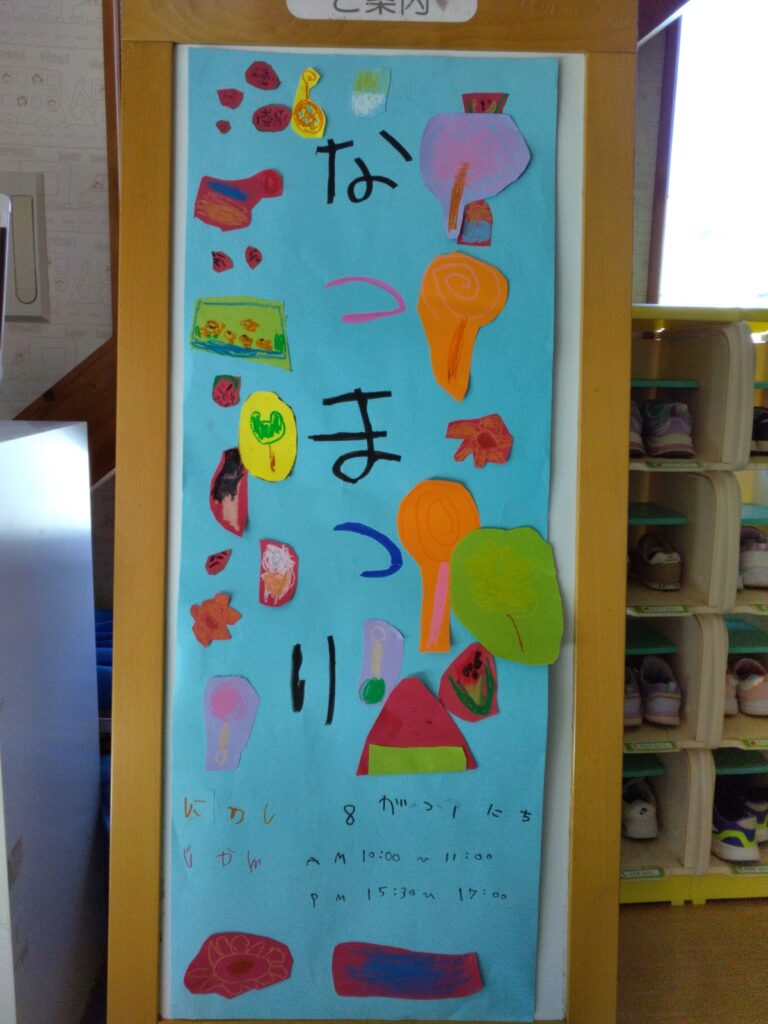 ご案内
なつまつり
にかし 8がつ1にち
じかん AM 10:00〜11:00
PM 15:30〜17:00